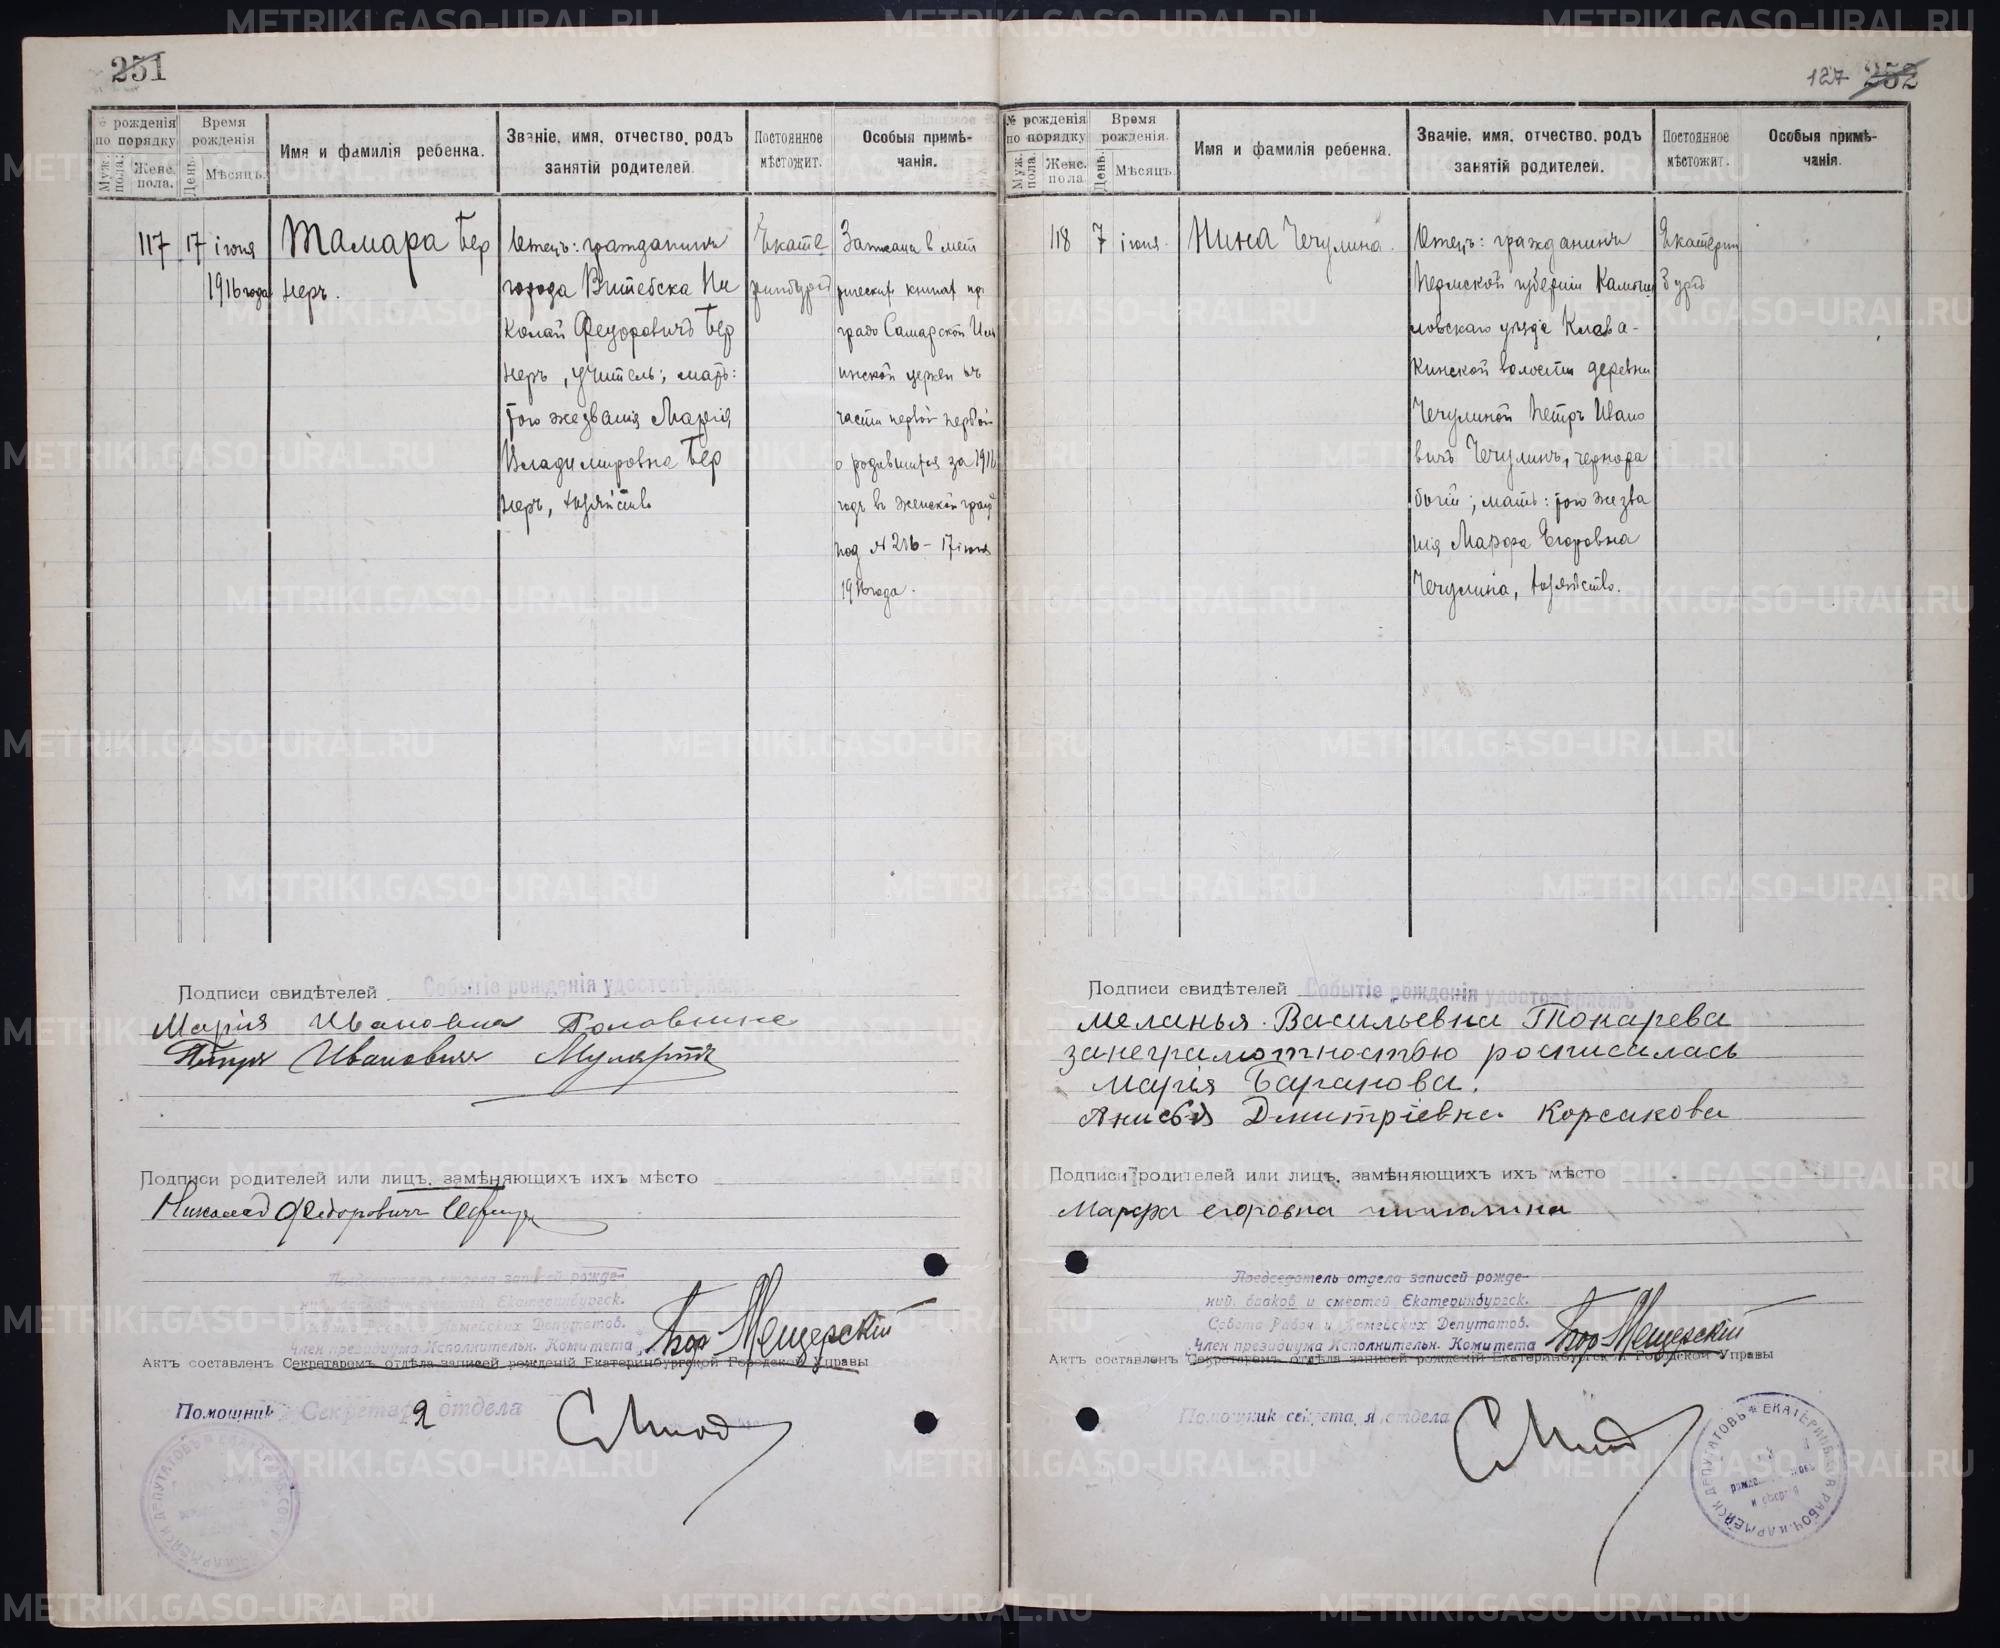 251
№ рожденія по порядку
Муж. пола.
Женс. пола.
Время рожденія
День.
Мѣсяцъ.
Имя и фамилія ребенка.
Званіе, имя, отчество, родъ занятій родителей.
Постоянное мѣстожит.
Особыя примѣчанія.
117
17
іюня
1916 года
Тамара Бер
неръ.
Отецъ: гражданинъ
города Витебска Ни
колай Федоровичъ Бер
неръ, учитель; мать:
того же званія Марія
Владимировна Бер
неръ, хозяйство
Екате
ринбургъ
Записана в мет
рическихъ книгахъ
града Самарской Иль
инской церкви въ
части первой
о родившихся за 1916
годъ въ женской графѣ
под № 216 - 17 іюня
1916 года.
Подписи свидѣтелей
Событіе рожденія удостовѣряемъ
Марія Ивановна Головкина
Петръ Ивановичъ
Подписи родителей или лицъ, замѣняющихъ ихъ мѣсто
Николай Федоровичъ Бернеръ
Председатель отдела записей рожде-
ний, браков и смертей Екатеринбургск.
Совета Рабоч. и Армейских Депутатов.
Член президиума Исполнительн. Комитета
Бор-Мещерскій
Актъ составленъ Секретаремъ отдѣла записей рожденій Екатеринбургской Городской Управы
Помощник Секретаря отдела
127 252
№ рожденія по порядку
Муж. пола.
Женс. пола
День.
Время рожденія.
Мѣсяцъ.
Имя и фамилія ребенка.
Званіе, имя, отчество, родъ занятій родителей.
Постоянное мѣстожит.
Особыя примѣчанія.
118
7
іюня
Нина Чечулина.
Отецъ: гражданинъ
Пермской губерніи Камыш
ловскаго уѣзда Клева-
кинской волости деревни
Чечулиной Петръ Ивано
вичъ Чечулинъ, чернора
бочій; мать: того же зва
нія Марфа Егоровна
Чечулина, хозяйство.
Екатерин
бургъ
Подписи свидѣтелей
Событіе рожденія удостовѣряемъ
Меланья Васильевна Токарева
занеграмотностью росписалась
Марія Баранова.
Анисья Дмитріевна Корсакова
Подписи родителей или лицъ, замѣняющихъ ихъ мѣсто
Марфа егоровна чичюлина
Председатель отдела записей рожде-
ний, браков и смертей Екатеринбургск.
Совета Рабоч. и Армейских Депутатов.
Член президиума Исполнительн. Комитета
Бор-Мещерскій
Актъ составленъ Секретаремъ отдѣла записей рожденій Екатеринбургской Городской Управы
Помощник секретаря отдела
METRIKI.GASO-URAL.RU